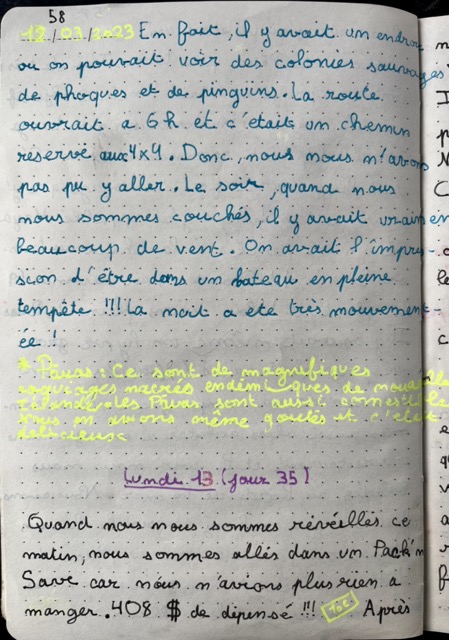 58
12/03/2023 En fait, il y avait un endroit
ou on pouvait voir des colonies sauvages
de phoques et de pinguins. La route
ouvrait a 6h et c'était un chemin
reservé aux 4x4. Donc, nous nous n'avons
pas pu y aller. Le soir, quand nous
nous sommes couchés, il y avait vraiment
beaucoup de vent. On avait l'impres-
sion d'être dans un bateau en pleine
tempête !!! La nuit a eté très mouvement-
ée !
* Pauas : Ce sont de magnifiques
coquillages nacrés endémiques de nouvelle
zélande. Les Pauas sont aussi comestibles
nous en avions même goutés et c'était
delicieux
Lundi 13 (jour 35)
Quand nous nous sommes réveillés ce
matin, nous sommes allés dans un Pack'n
Save car nous n'avions plus rien a
manger. 408 $ de dépensé !!! Après